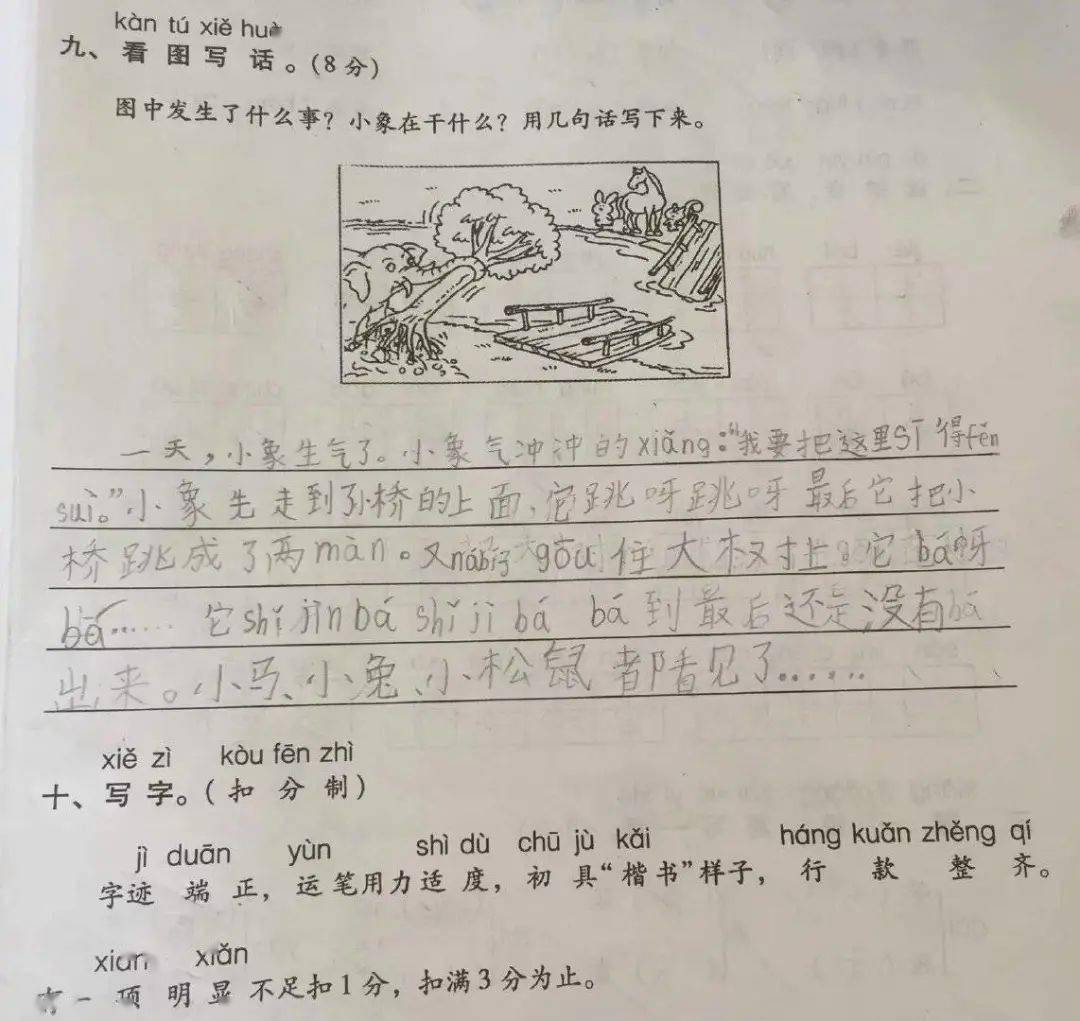 kàn tú xiě huà
九、看图写话。(8分)
图中发生了什么事？小象在干什么？用几句话写下来。
一天，小象生气了。小象气冲冲的xiǎng：“我要把这里sī得fěn
suì。”小象先走到小桥的上面，它跳呀跳呀最后它把小
桥跳成了两màn。又nábízi gōu住大树上。它bá呀
bá……它shǐ jìn bá shǐ jì bá bá到最后还是没有bá
出来。小马、小兔、小松鼠都看见了……
xiě zì kòu fēn zhì
十、写字。(扣分制)
jì duān yùn shì dù chū jù kǎi háng kuǎn zhěng qí
字迹端正，运笔用力适度，初具“楷书”样子，行款整齐。
xiǎn
一项明显不足扣1分，扣满3分为止。